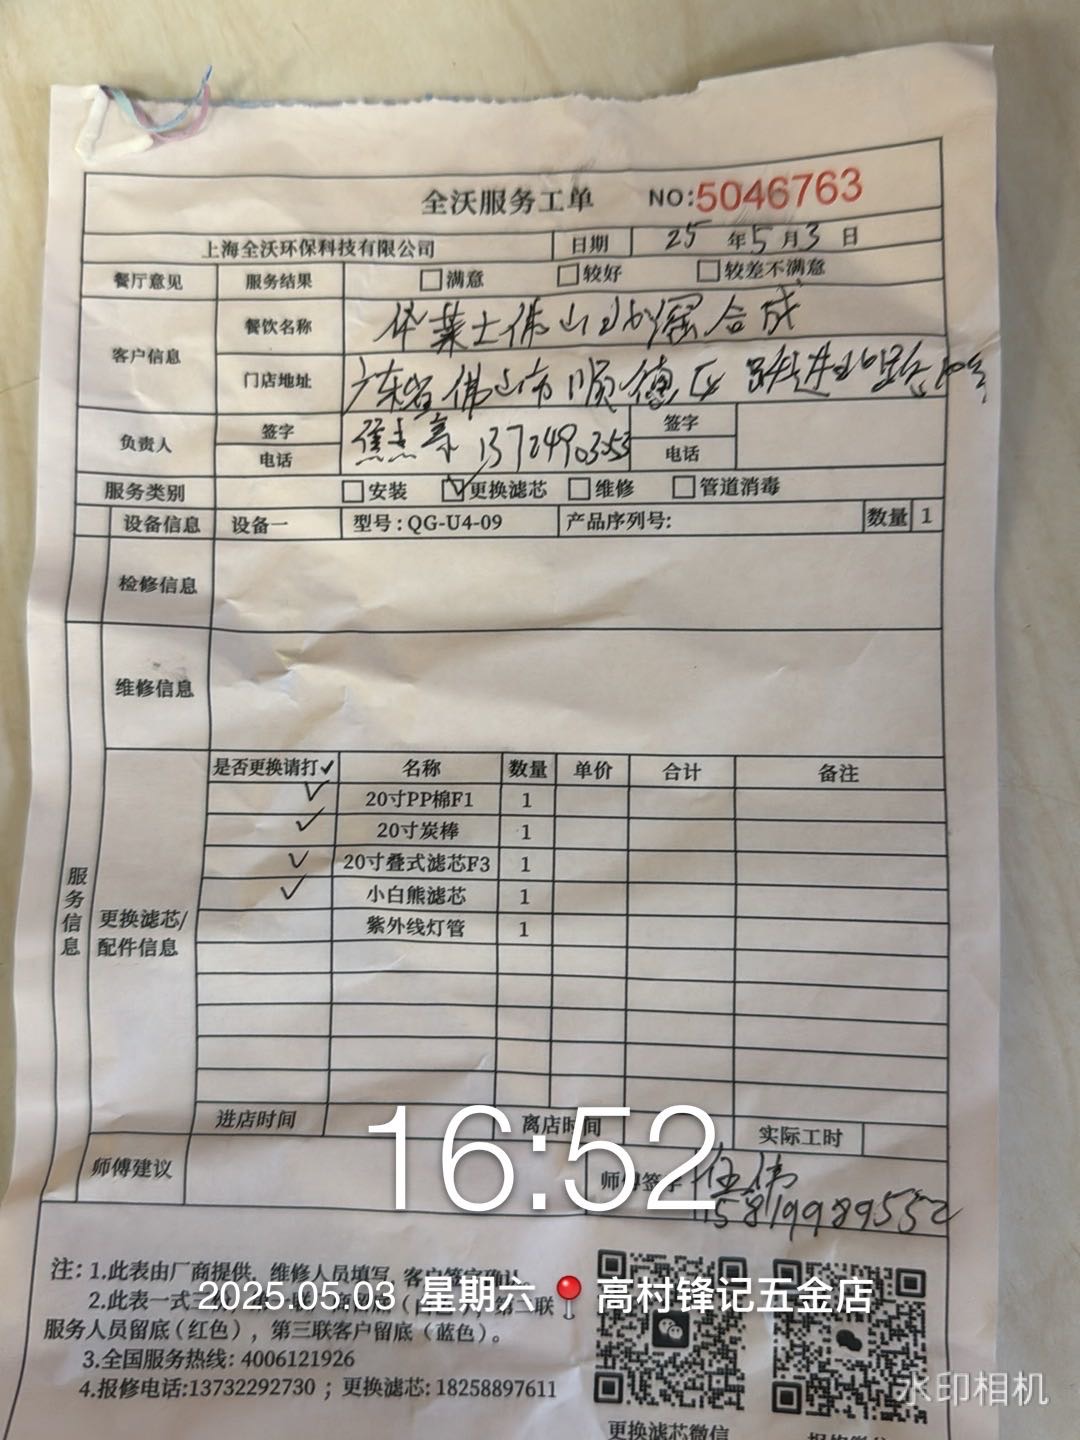 全沃服务工单 NO:5046763
上海全沃环保科技有限公司 日期 25年5月3日
餐厅意见 服务结果 □满意 □较好 □较差不满意
客户信息 餐饮名称 华莱士佛山 合成
门店地址 广东省佛山市顺德区 跃进北路
负责人 签字 焦志亮 签字
电话 13724903253 电话
服务类别 □安装 ☑更换滤芯 □维修 □管道消毒
设备信息 设备一 型号:QG-U4-09 产品序列号: 数量 1
检修信息
维修信息
服务信息
更换滤芯/配件信息
是否更换请打✓ 名称 数量 单价 合计 备注
✓ 20寸PP棉F1 1
✓ 20寸炭棒 1
✓ 20寸叠式滤芯F3 1
✓ 小白熊滤芯 1
紫外线灯管 1
进店时间 离店时间 实际工时
16:52
师傅建议 师傅签字 伍伟
15819989552
注:1.此表由厂商提供,维修人员填写,客户签字确认
2.此表一式三 第二联
服务人员留底(红色),第三联客户留底(蓝色)。
2025.05.03 星期六 高村锋记五金店
3.全国服务热线: 4006121926
4.报修电话:13732292730 ; 更换滤芯: 18258897611
水印相机
更换滤芯微信